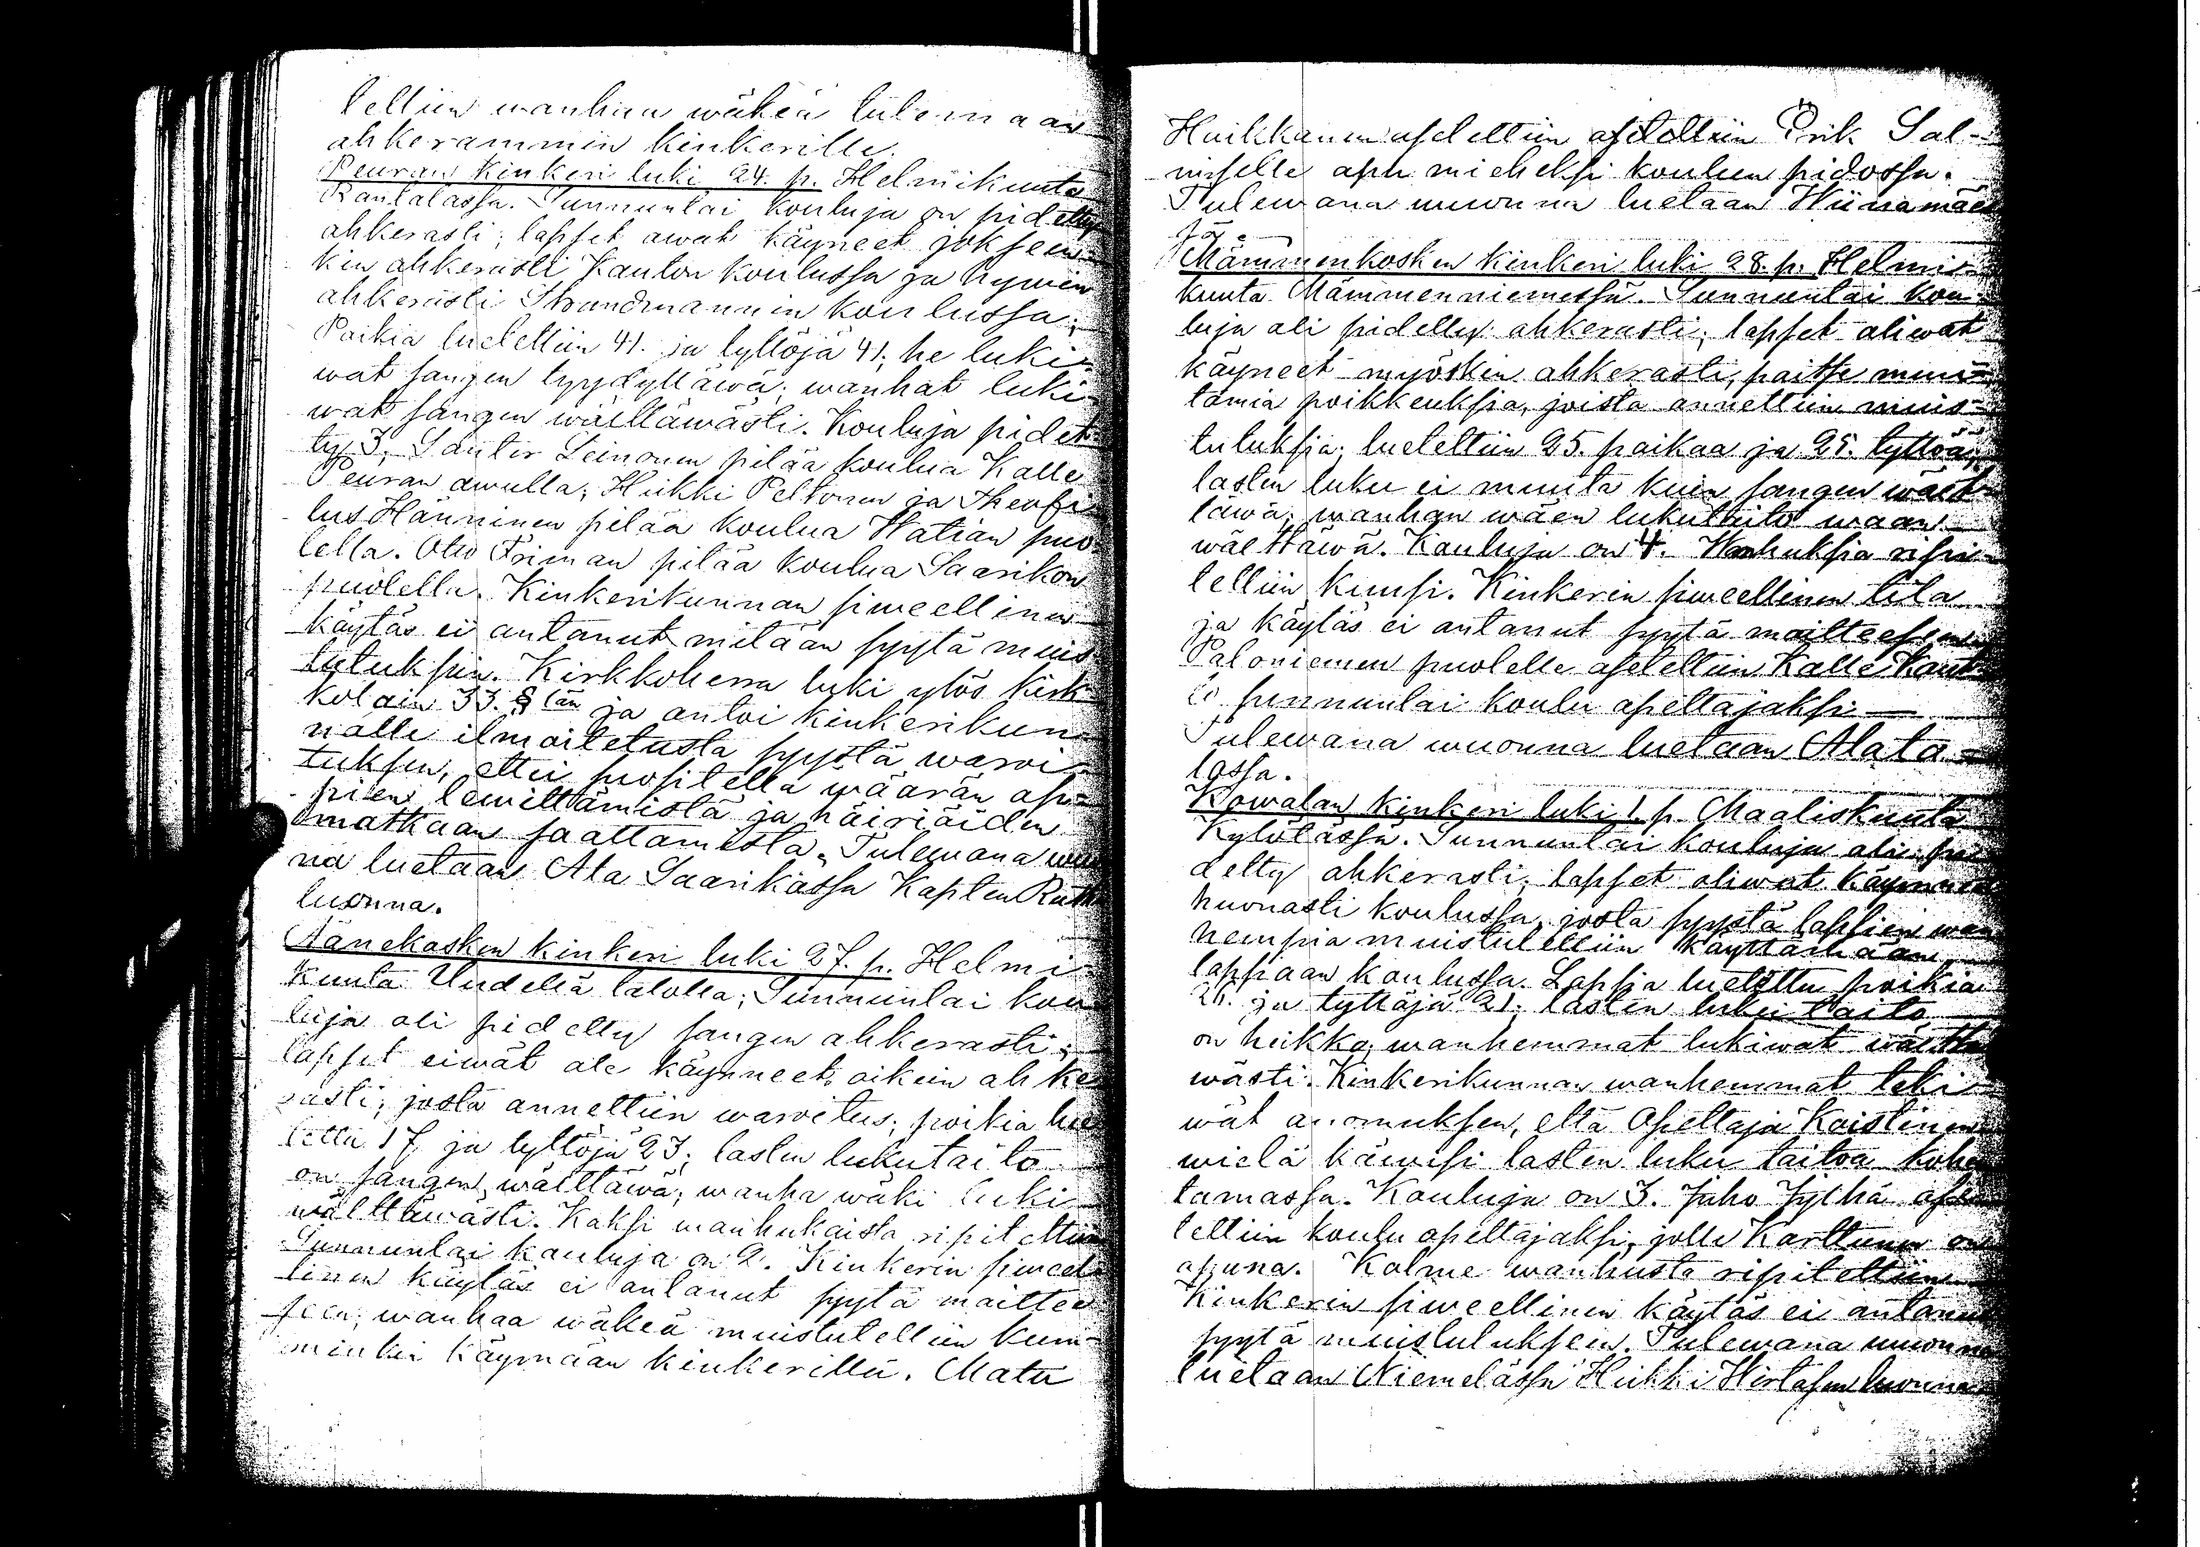 tettiin wanhaa wäkeä tulemaan
ahkerammin kinkerille.
Peuran kinkeri luki 24. p. Helmikuuta
Rantalassa. Sunnuntai kouluja on pidetty
ahkerasti; lapset awat käyneet jokseen-
kin ahkerasti Kanton koulussa ja hywin
ahkerasti Strandmannin koulussa;
Poikia luetettiin 41. ja tyttöjä 41; he luki-
wat sangen tyydyttäwä; wanhat luki-
wat sangen wälttäwästi. Kouluja pidet-
ty 3, Santer Leinonen pitää koulua Kalle
Peuran awulla; Heikki Peltonen ja Theofi-
lus Hänninen pitää koulua Hatian puo-
lella. Otto Friman pitää koulua Saarikon
puolella. Kinkerikunnan siweellinen
käytäs ei antanut mitään syytä muis-
tutuksiin. Kirkkoherra luki ylös kirk-
kolain 33. § län ja antoi kinkerikun-
nalle ilmoitetusta syystä waroi-
tuksen, ettei suositella wäärän op-
pien lewittämistä ja häiriöiden
matkaan saattamista. Tulewana wuon
na luetaan Ala Saarikassa Kapten Ruth
luonna.
Äänekosken kinkeri luki 27. p. Helmi-
kuuta Uudella talolla; Sunnuntai kou-
luja oli pidetty sangen ahkerasti;
lapset eiwät ole käynneet oikein ahke-
rasti; josta annettiin waroitus; poikia lue
tettu 17 ja tyttöjä 23; lasten lukutaito
on sangen wälttäwä; wanha wäki luki
wälttäwästi. Kaksi wanhukaista ripitettiin
Sunnuntai kouluja on 2. Kinkerin siweel-
linen käytäs ei antanut syytä moittee
seen; wanhaa wäkeä muistutettiin kum-
minkin käymään kinkerillä. Matu
Huikkanen asetettiin asetettiin Erik Sal-
miselle apu mieheksi koulun pidossa.
Tulewana wuonna luetaan Hiinamäes
sä.
Mämmenkosken kinkeri luki 28. p. Helmi-
kuuta Mämmenniemessä. Sunnuntai kou-
luja oli pidetty ahkerasti; lapset oliwat
käyneet myöskin ahkerasti, paitse muu-
tamia poikkeuksia, joista annettiin muis-
tutuksia; luetettiin 25. poikaa ja 25. tyttöä;
lasten luku ei muuta kuin sangen wält-
täwä; wanhan wäen lukutaito waan
wälttäwä. Kouluja on 4. Wanhuksia ripi-
tettiin kuusi. Kinkerin siweellinen tila
ja käytäs ei antanut syytä moitteesen
Paloniemen puolelle asetettiin Kalle Kaut
to sunnuntai koulu opettajaksi
Tulewana wuonna luetaan Alata-
lossa.
Kowalan kinkeri luki 1. p. Maaliskuuta
Kylölässä. Sunnuntai kouluja oli pi-
detty ahkerasti; lapset oliwat käynneet
huonosti koulussa, josta syystä lapsien wan
hempia muistutettiin käyttämään
lapsiaan koulussa. Lapsia luetettu poikia
21. ja tyttöjä 21; lasten luku taito
on heikko; wanhemmat lukiwat wältä
wästi. Kinkerikunnan wanhemmat teki-
wät anomuksen, että Opettaja Koistinen
wielä käwisi lasten luku taitoa kohen
tamassa. Kouluja on 3. Juho Jylhä ase-
tettiin koulu opettajaksi, jolle Karttunen on
apuna. Kolme wanhusta ripitettiin
Kinkerin siweellinen käytäs ei antanut
syytä muistutukseen. Tulewana wuonna
luetaan Niemelässä Heikki Hirtasen luonna